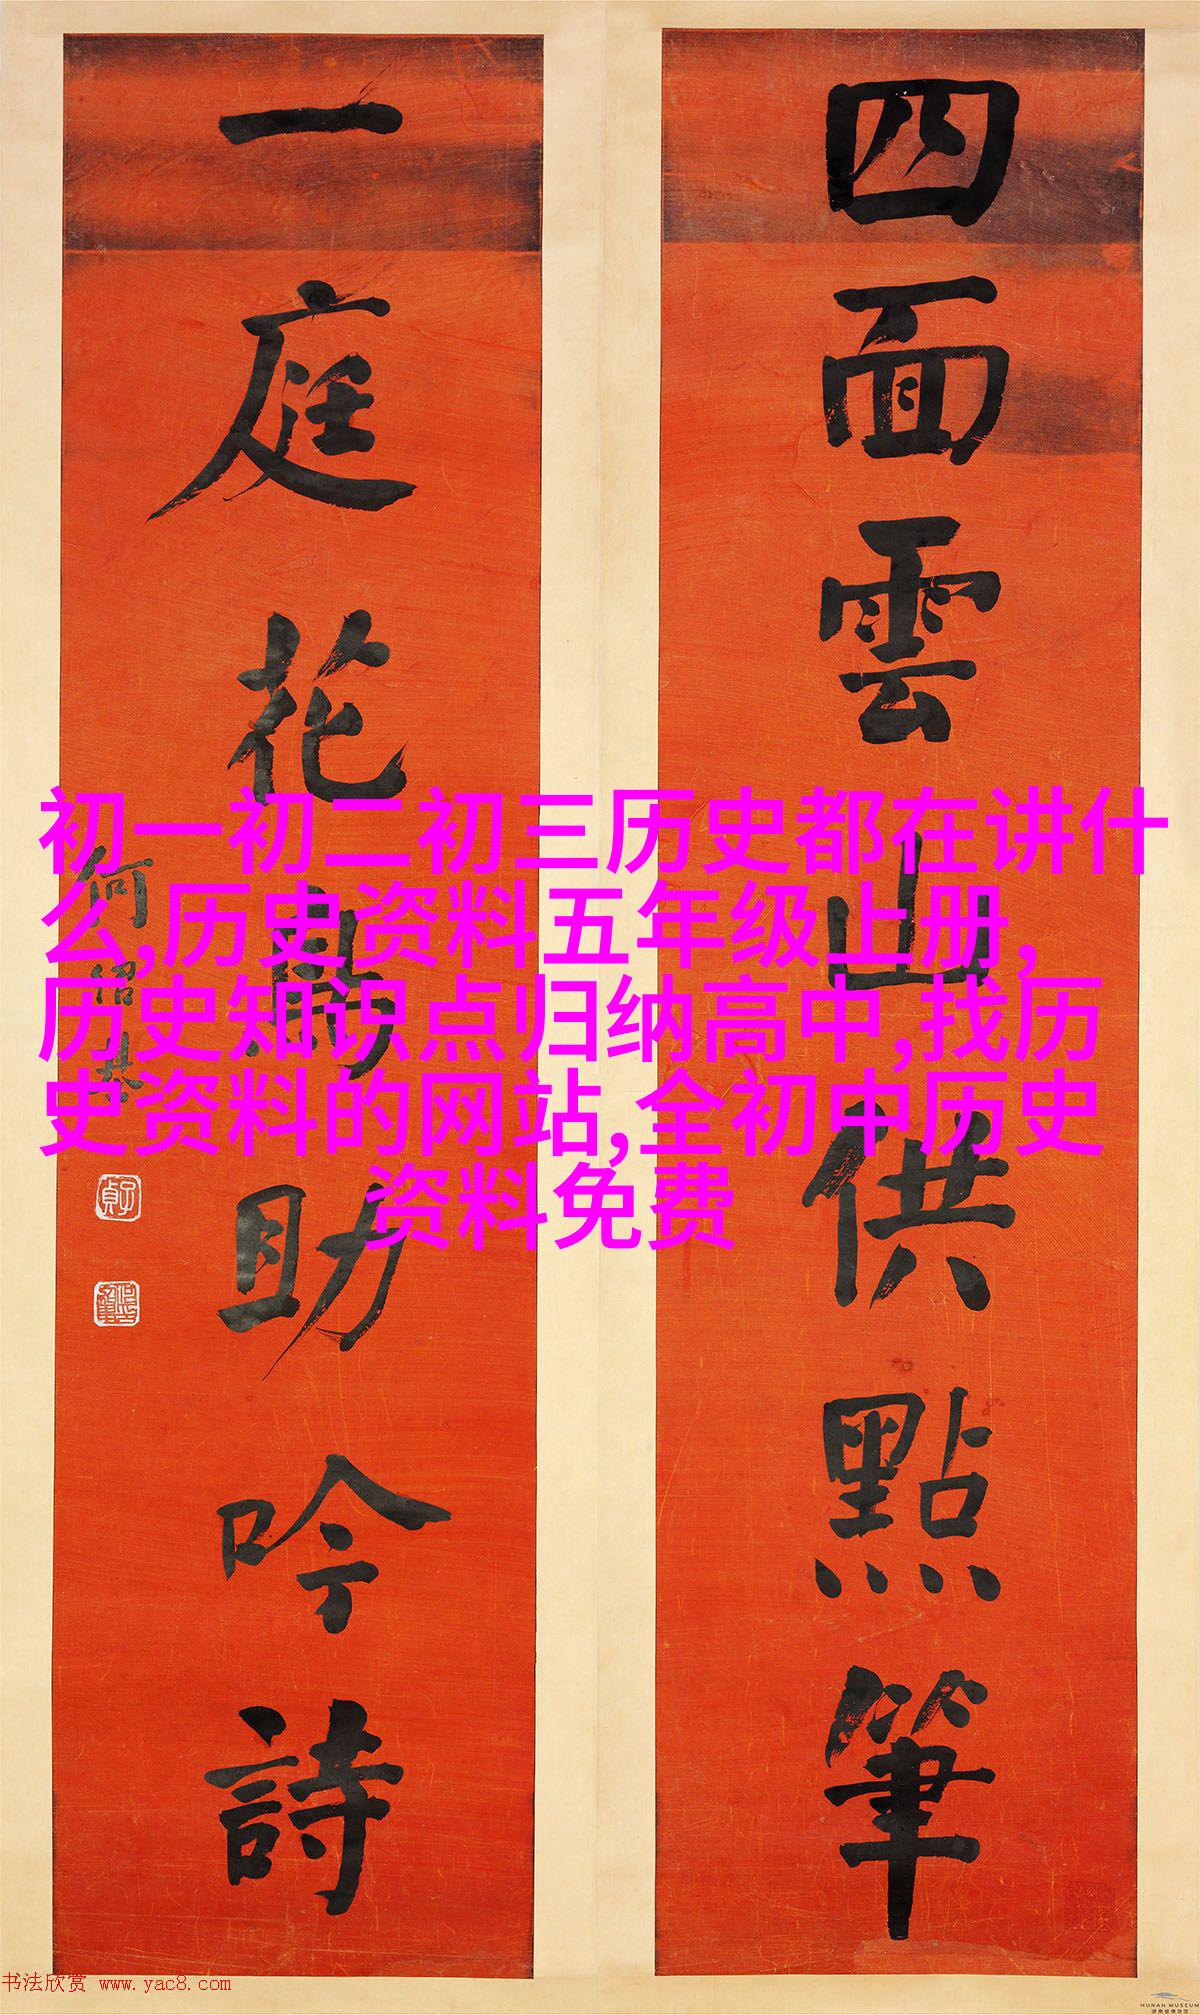 四面雲山供點筆
一庭花鳥助吟詩
何紹基
初一初二初三历史都在讲什
么,历史资料五年级上册,
历史知识点归纳高中,找历
史资料的网站,全初中历史
资料免费
书法欣赏 www.yac8.com
HUNAN MUSEUM